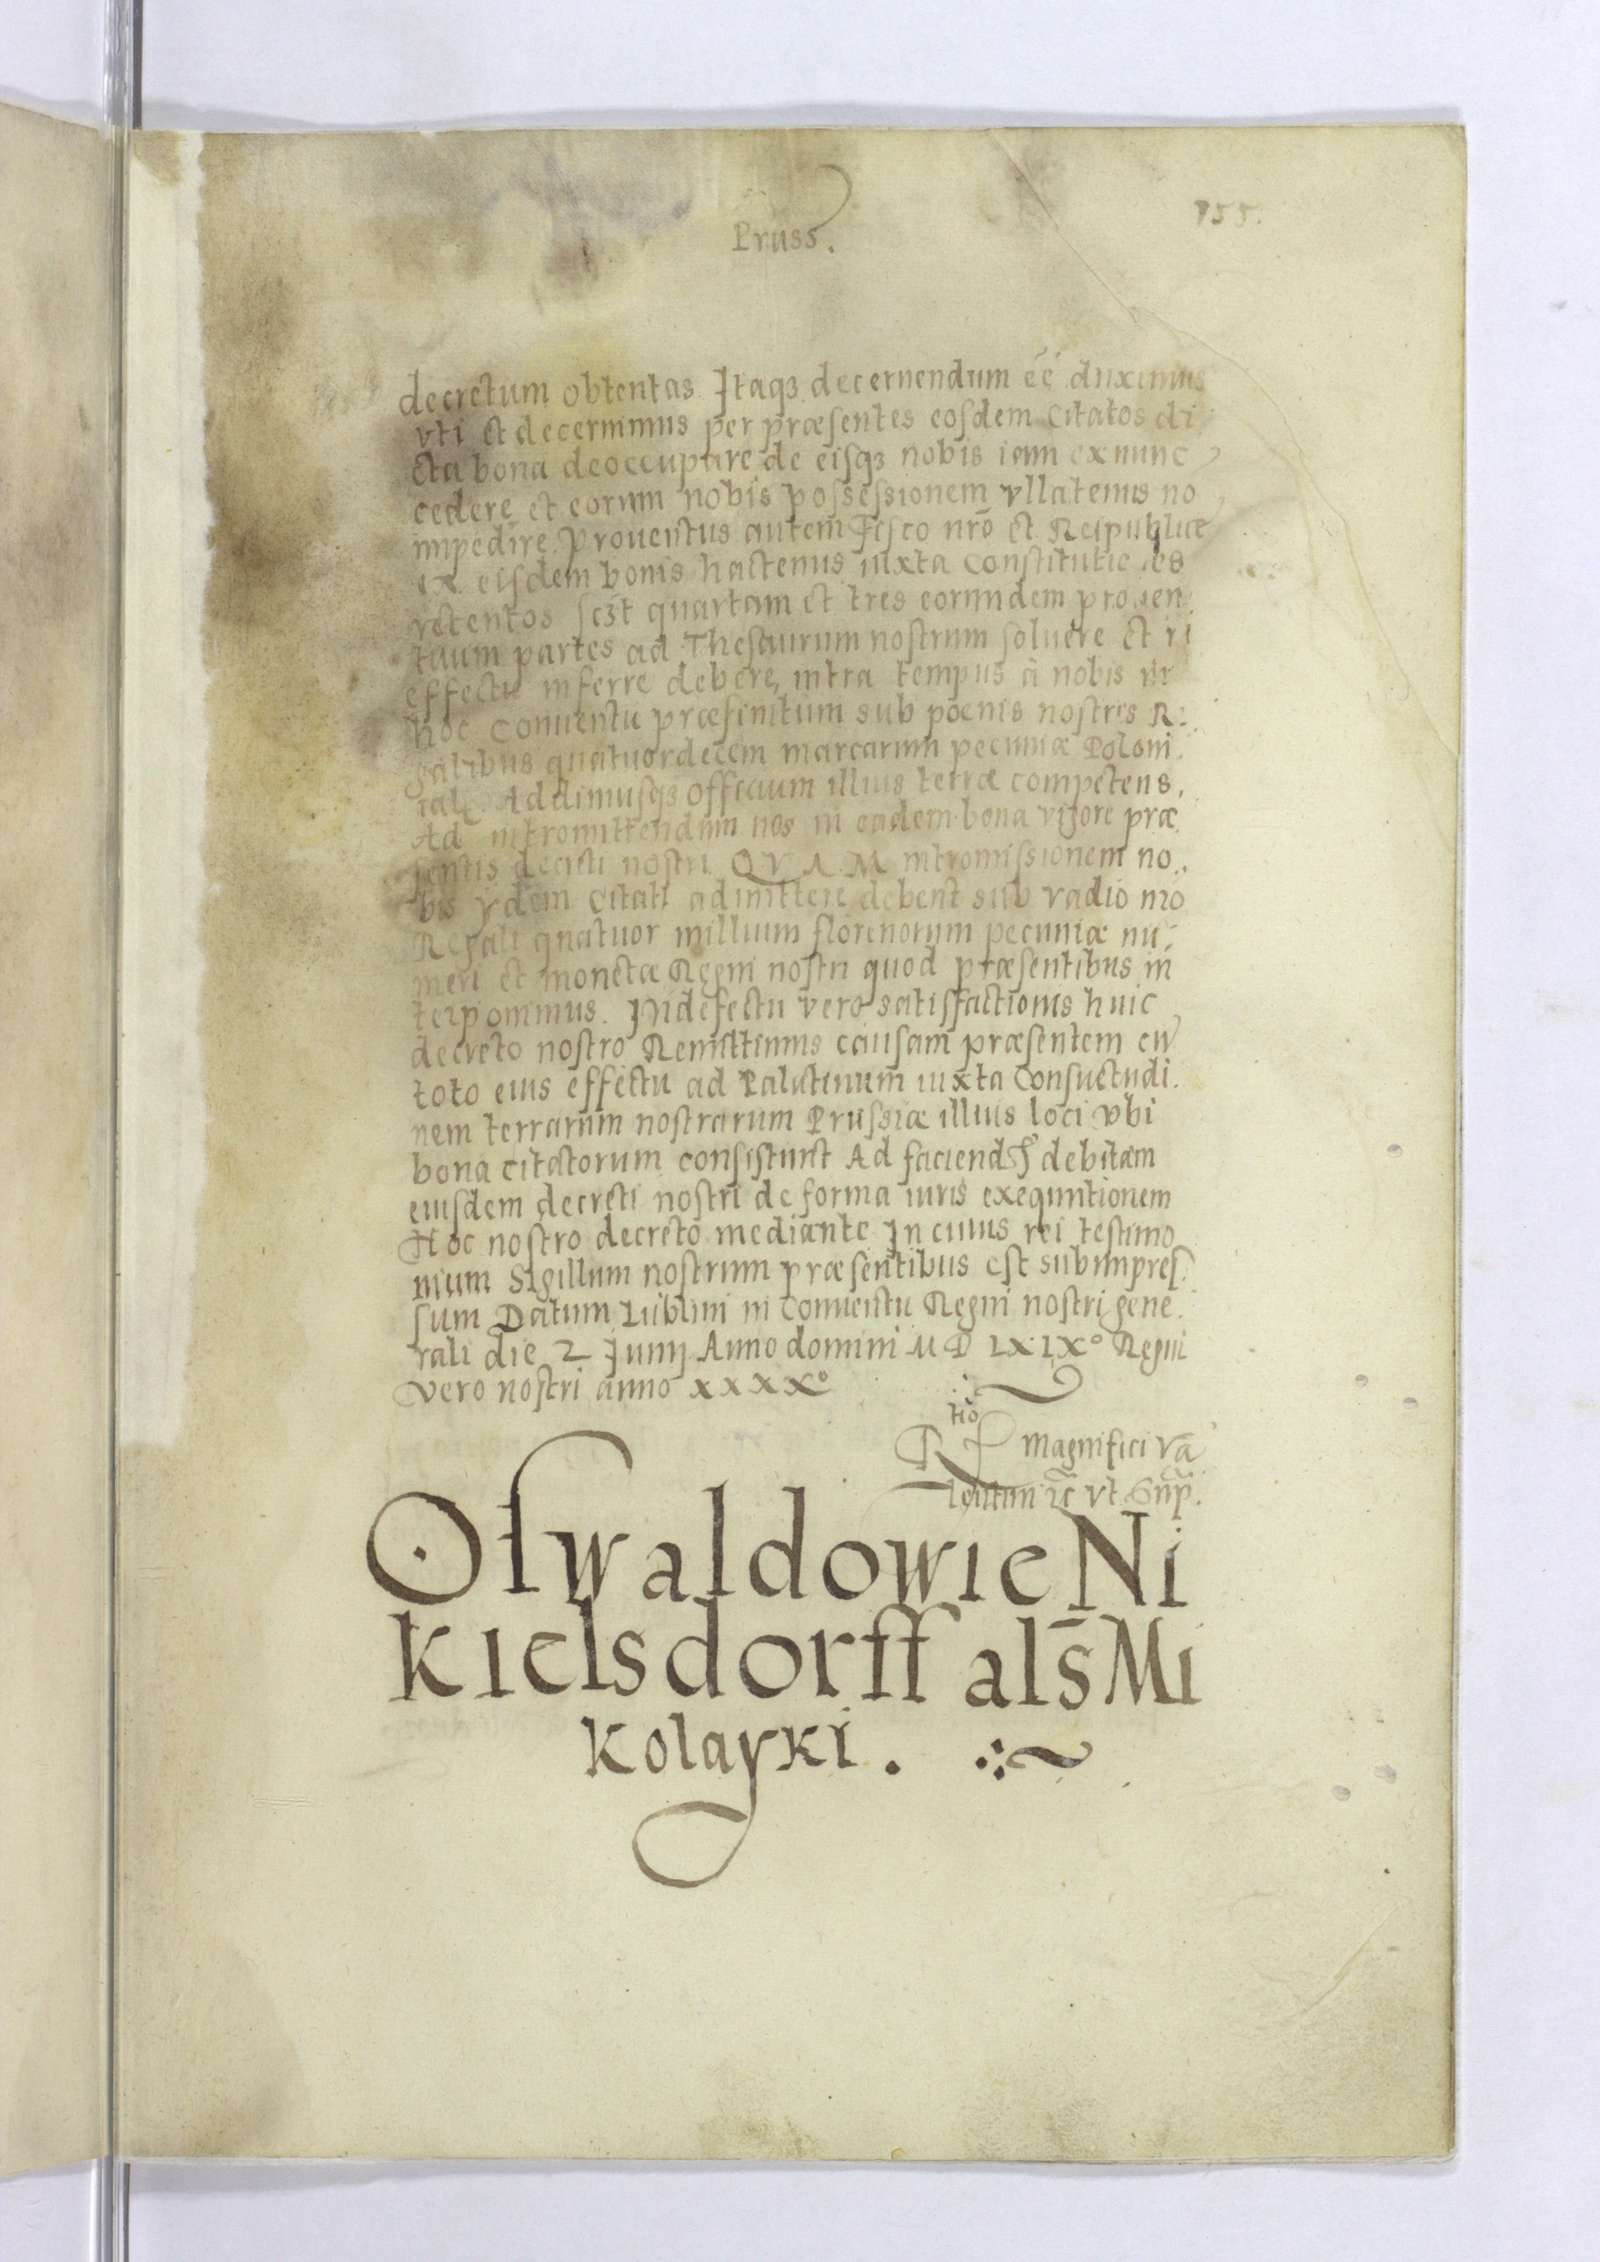 Pruss.
155.
decretum obtentas. Itaqꝫ decernendum ēē duximus
vti et decernimus per præsentes eosdem Citatos di
cta bona deoccupare de eisqꝫ nobis iam ex nunc
cedere et eorum nobis possessionem vllatenus no
impedire. Prouentus autem Fisco nrō et Reipublicæ
ex eisdem bonis hactenus iuxta Constitutiones
retentos scꝫt quartam et tres eorundem prouen
tuum partes ad Thesaurum nostrum soluere et ri
effectu inferre debere, intra tempus à nobis in
hoc Conuentu præfinitum sub pœnis nostris R:
galibus quatuordecem marcarum pecuniæ Poloni.
calę. Addimusqꝫ officium illius terræ competens,
Ad intromittendum nos in eadem bona vigore præ
sentis decreti nostri. QVAM intromissionem no.
bis ydem Citati admittere debent sub vadio nrō
Regali quatuor millium florenorum pecuniæ nu
meri et monetæ Regni nostri quod præsentibus in
terponimus. In defectu vero satisfactionis huic
decreto nostro Remittimus causam præsentem cū
toto eius effectu ad Palatinum iuxta Consuetudi.
nem terrarum nostrarum Prussiæ illius loci vbi
bona citatorum consistunt Ad faciend debitam
eiusdem decreti nostri de forma iuris exequutionem
Hoc nostro decreto mediante In cuius rei testimo
nium Sigillum nostrum præsentibus est subimpres
sum Datum Lublini in Conuentu Regni nostri gene.
rali die 2 Junij Anno domini M D LXIX° Regni
vero nostri anno XXXX°
Rtio P magnifici Va
lentini ut Sup.
Oswaldowie Ni
kielsdorff als̄ Mi
kolayki.